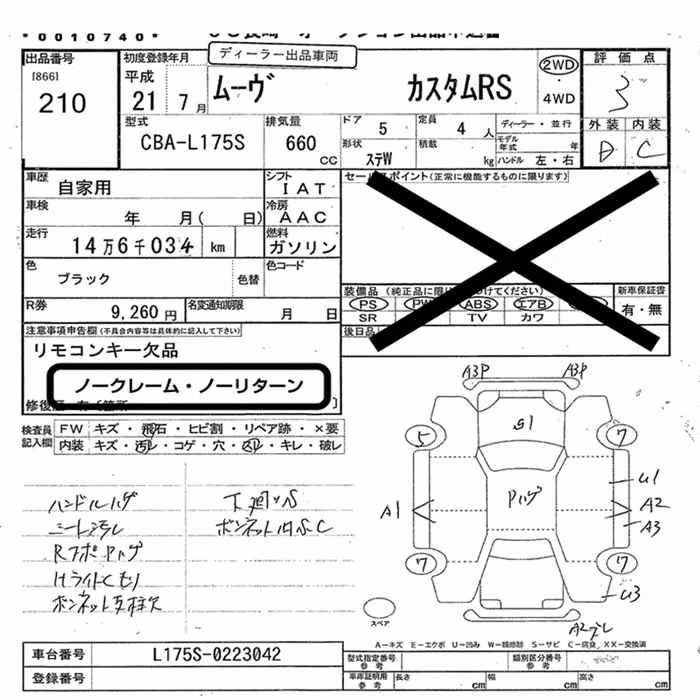 *0010740*
ディーラー出品車両
出品番号
[866]
210
初度登録年月
平成
21年7月
ムーヴ カスタムRS
2WD
4WD
評価点
3
外装 内装
D C
型式
CBA-L175S
排気量
660
CC
ドア 5
定員 4 人
ディーラー・並行
形状 ステW
積載 kg
モデル年式 年
ハンドル 左・右
車歴
自家用
シフト
IAT
セールスポイント(正常に機能するものに限ります)
車検
年 月( 日)
冷房
AAC
走行
14万6千034 km
燃料
ガソリン
色
ブラック
色替
色コード
装備品
PS PW ABS エアB
SR TV カワ
新車保証書
有・無
R券
9,260円
名変通知期限
月 日
後日品
注意事項申告欄(不具合内容等は具体的に記入して下さい)
リモコンキー欠品
ノークレーム・ノーリターン
検査員記入欄
FW キズ・飛石・ヒビ割・リペア跡・×要
内装 キズ・汚レ・コゲ・穴・スレ・キレ・破レ
ハンドルハゲ
シート汚レ
Hライトくもり
下廻りS
A3P A3P
S1
5 7
Pハゲ
A1
U1
A2
A3
7 7
U3
スペア
A2
A-キズ E-エクボ U-凹み W-補修跡 S-サビ C-腐食 XX-交換済
車台番号
L175S-0223042
登録番号
型式指定番号
参考
類別区分番号
参考
車庫証明用
参考
長さ cm
幅 cm
高さ cm